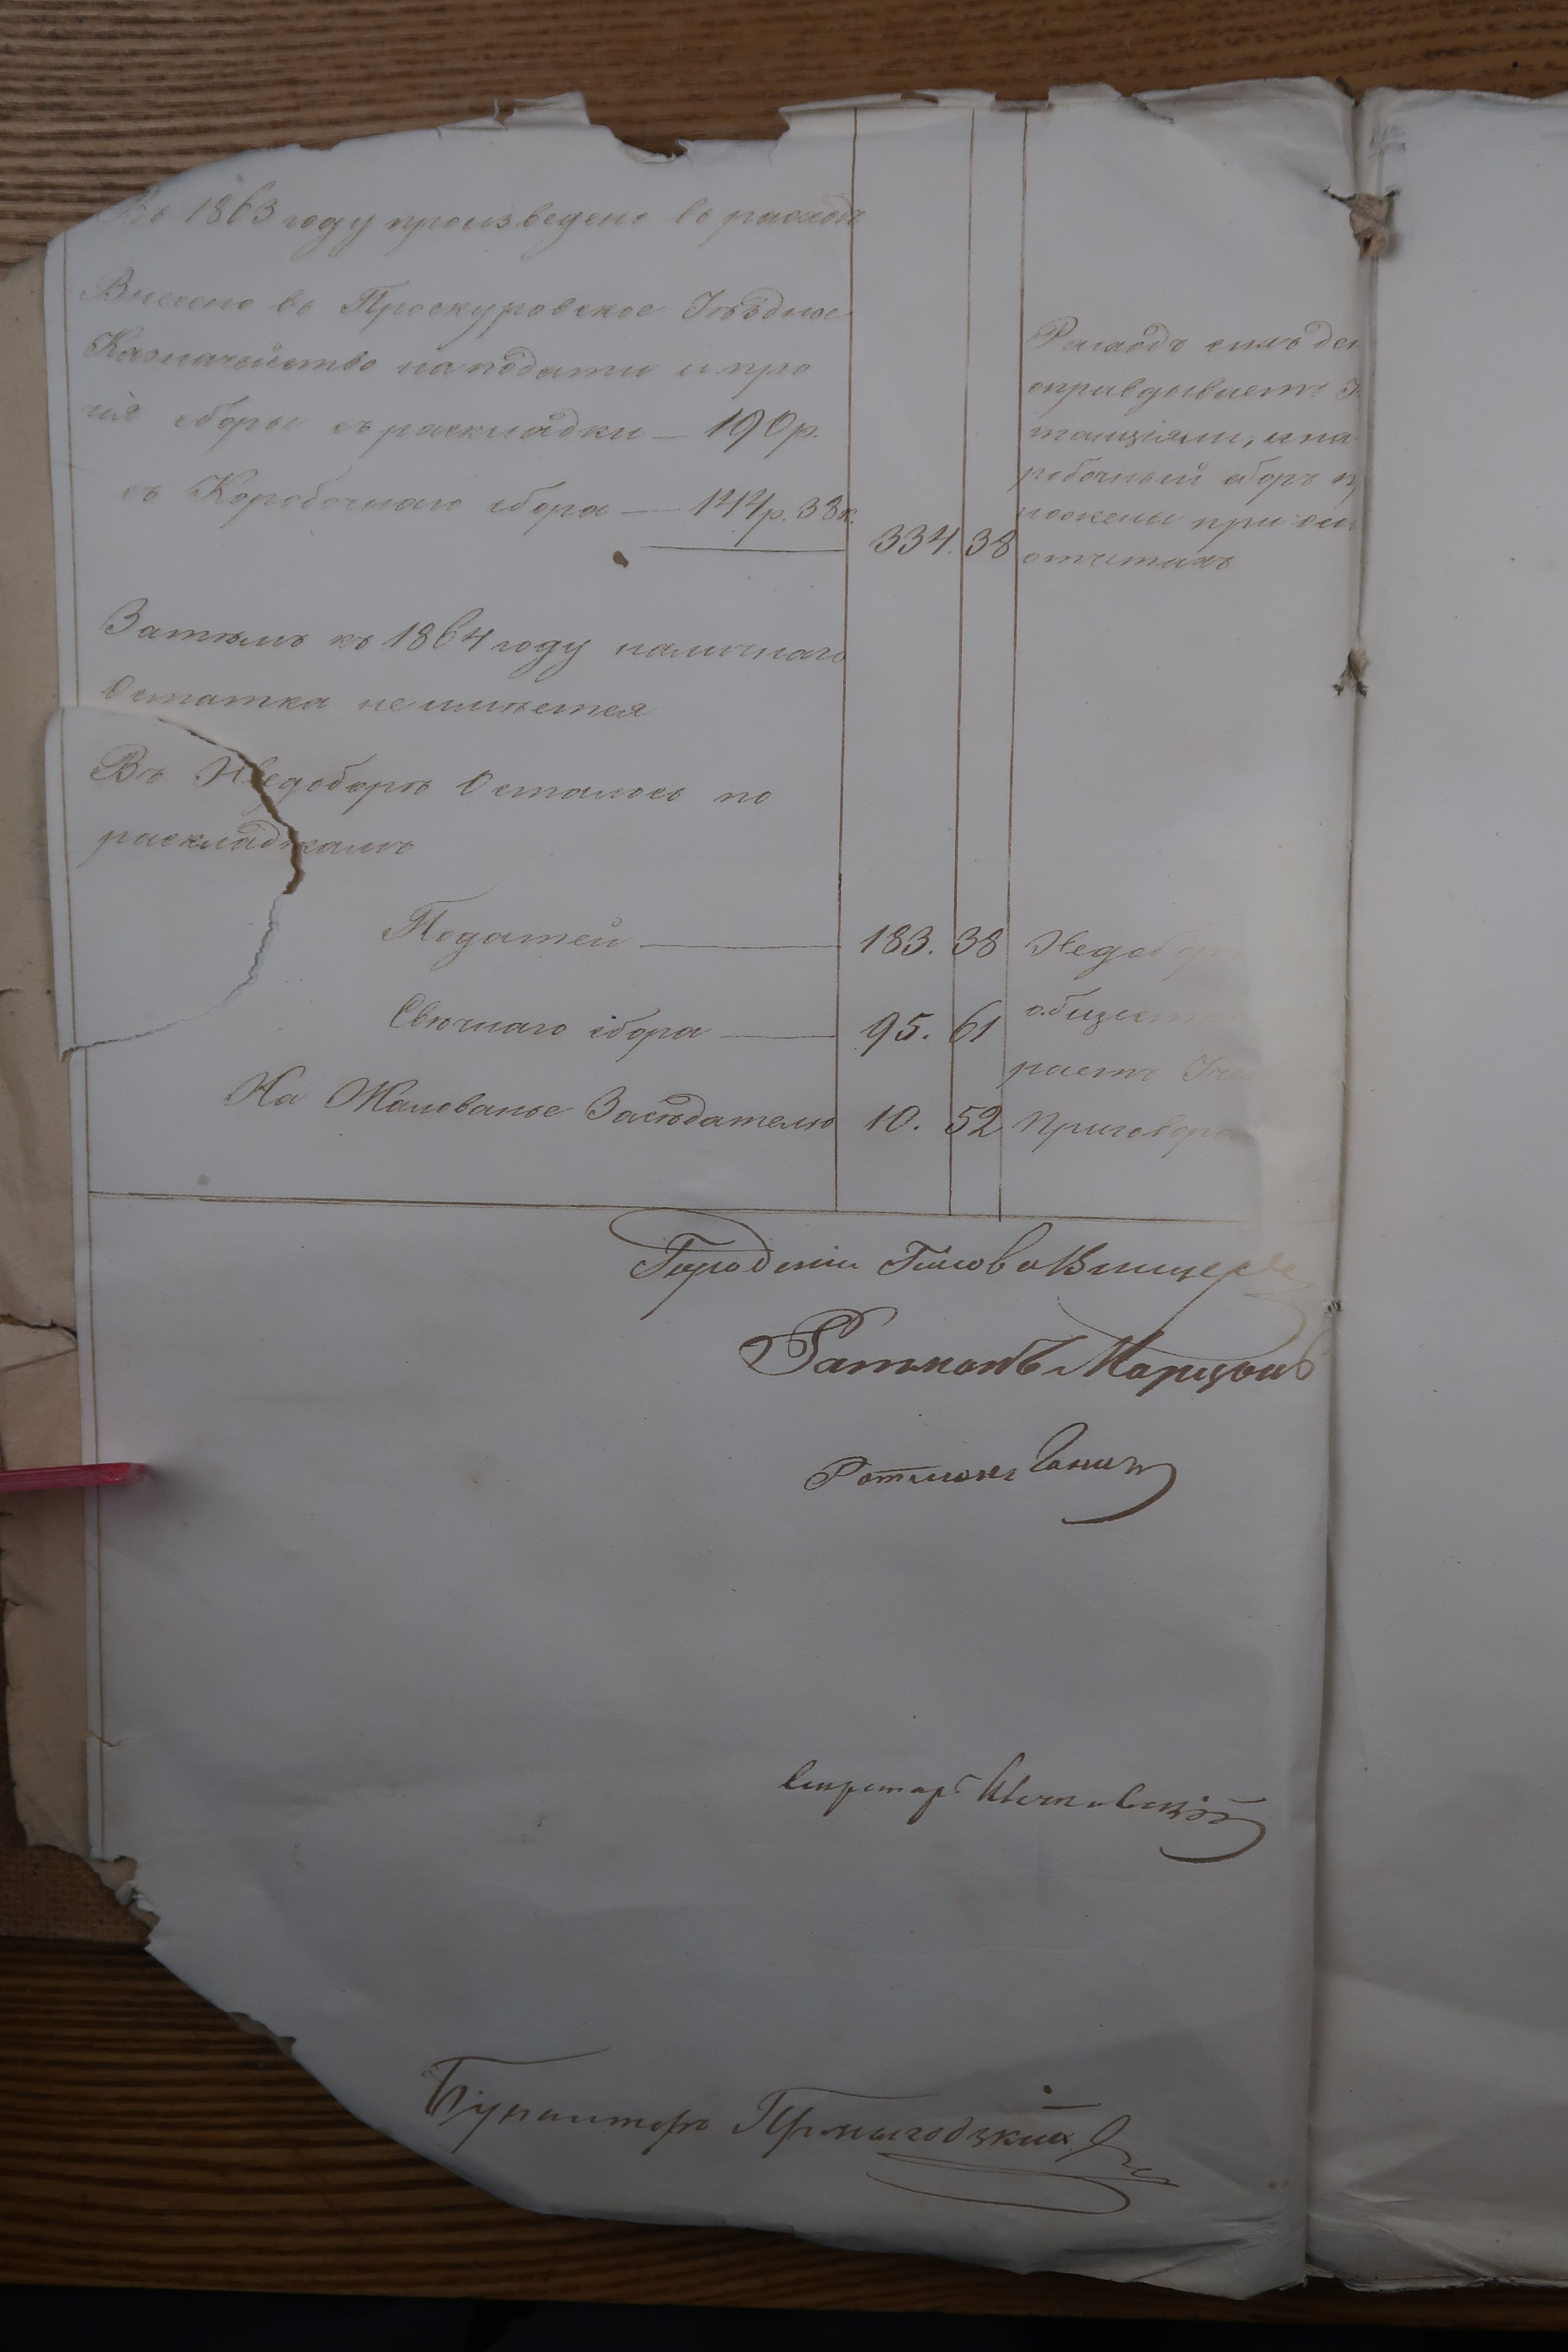 Въ 1863 году произведено въ расходъ
Внесено въ Проскуровское Уѣздное
Казначейство на подати и про
чія сборы съ раскладки — 190 р.
съ Коробочнаго сбора — 144 р. 38 к.
334. 38
Расходъ симъ
оправдываетъ
танціями, и на
робочный сборъ
ложены при
отчетахъ
Затѣмъ къ 1864 году наличнаго
Остатка не имѣется
Въ Недоборѣ Осталось по
раскладкамъ
Податей — 183. 38
Свѣчнаго сбора — 95. 61
На Жалованье Засѣдателю 10. 52
Недобор
общест
раетъ
Приговором
Городскій Голова
Ратманъ
Ратманъ
Секретарь
Бухгалтеръ